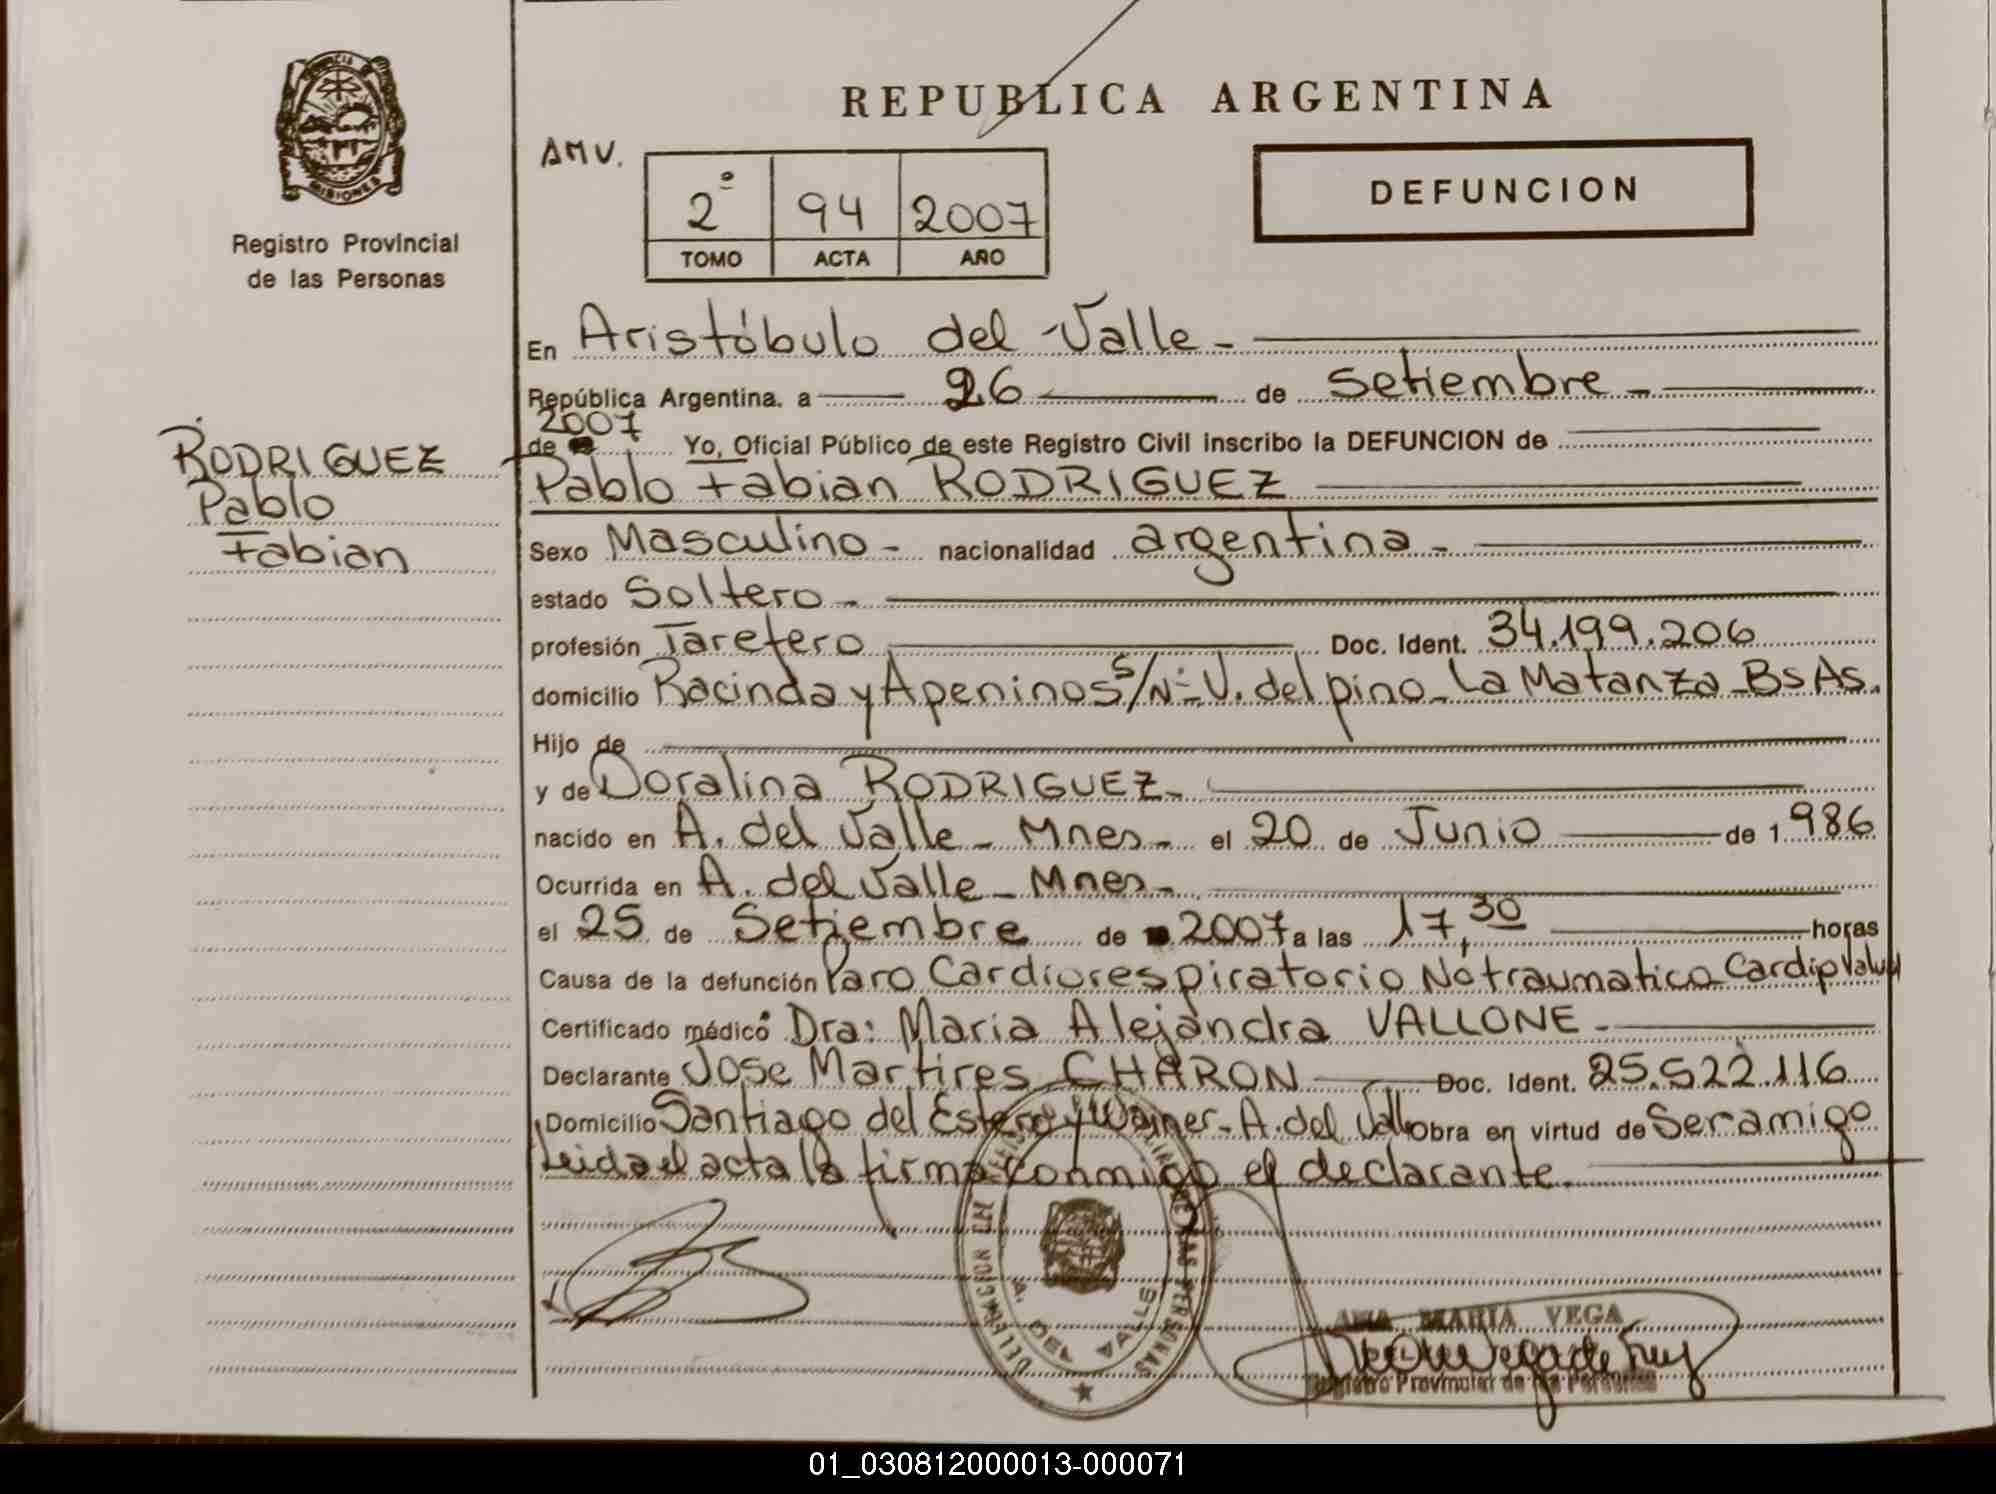 PROVINCIA DE
MISIONES
Registro Provincial
de las Personas
RODRIGUEZ
Pablo
Fabian
REPUBLICA ARGENTINA
AMV.
2º 94 2007
TOMO ACTA AÑO
DEFUNCION
En Aristóbulo del Valle -
República Argentina. a 26 de Setiembre -
2007
de Yo, Oficial Público de este Registro Civil inscribo la DEFUNCION de
Pablo Fabian RODRIGUEZ
Sexo Masculino - nacionalidad argentina -
estado Soltero -
profesión Tarefero Doc. Ident. 34.199.206
domicilio Racinda y Apeninos S/Nº - V. del pino - La Matanza - Bs As.
Hijo de
y de Doralina RODRIGUEZ -
nacido en A. del Valle - Mnes - el 20 de Junio de 1.986
Ocurrida en A. del Valle - Mnes -
el 25 de Setiembre de 2007 a las 17,30 horas
Causa de la defunción Paro Cardiorespiratorio No traumatico
Certificado médico Dra: Maria Alejandra VALLONE -
Declarante Jose Martires CHARON Doc. Ident. 25.522.116
Domicilio Santiago del Estero y Wainer - A. del Valle Obra en virtud de Ser amigo
Leida el acta la firma conmigo el declarante.
DELEGACION
DE LAS PERSONAS
A. DEL VALLE
ANA MARIA VEGA
Registro Provincial de las Personas
01_030812000013-000071